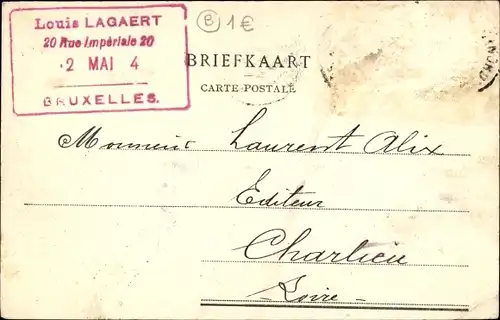 Louis LAGAERT
20 Rue Impériale 20
2 MAI 4
BRUXELLES.
B 1€
BRIEFKAART
CARTE POSTALE
Monsieur Laurent Alix
Editeur
Charlieu
Loire